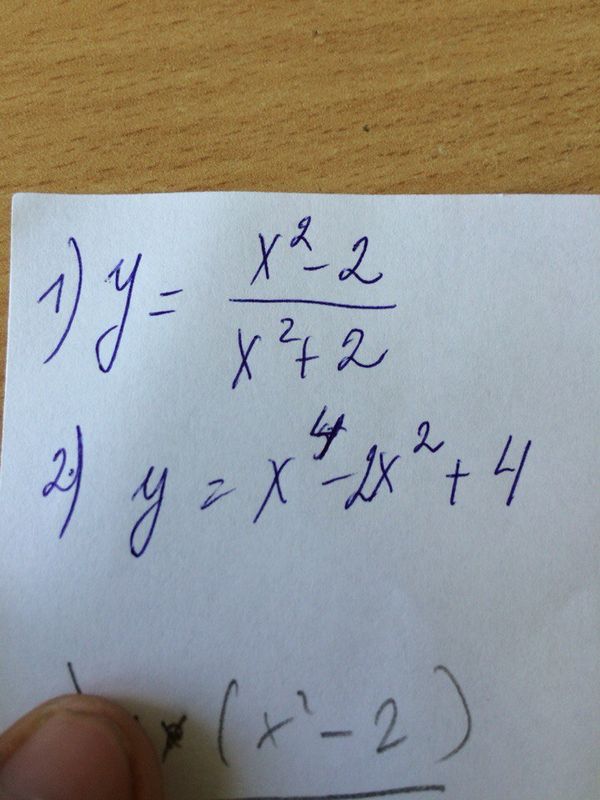 1) y = x² - 2 / x² + 2
2) y = x⁴ - 2x² + 4
(x² - 2)